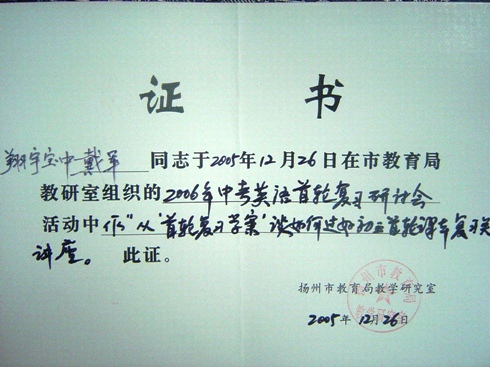 证 书
翔宇宝中戴军 同志于2005年12月26日在市教育局
教研室组织的2006年中考英语首轮复习研讨会
活动中作"从'首轮复习学案'谈如何过如初三首轮课本复习关
讲座。 此证。
扬州市教育局教学研究室
2005年12月26日